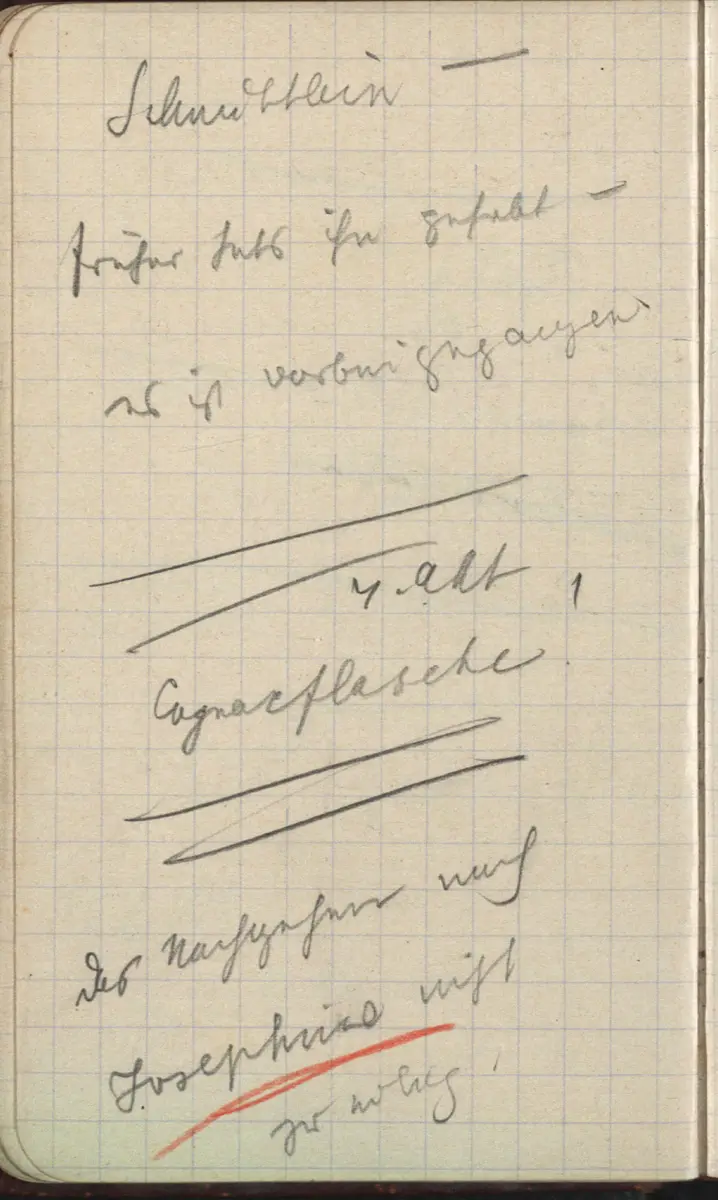 Schmidtlein —
früher hats ihn gehabt —
es ist vorbei gegangen
4. Akt
Cognacflasche!
Das Nachgehen nach
Josephine nicht
zu